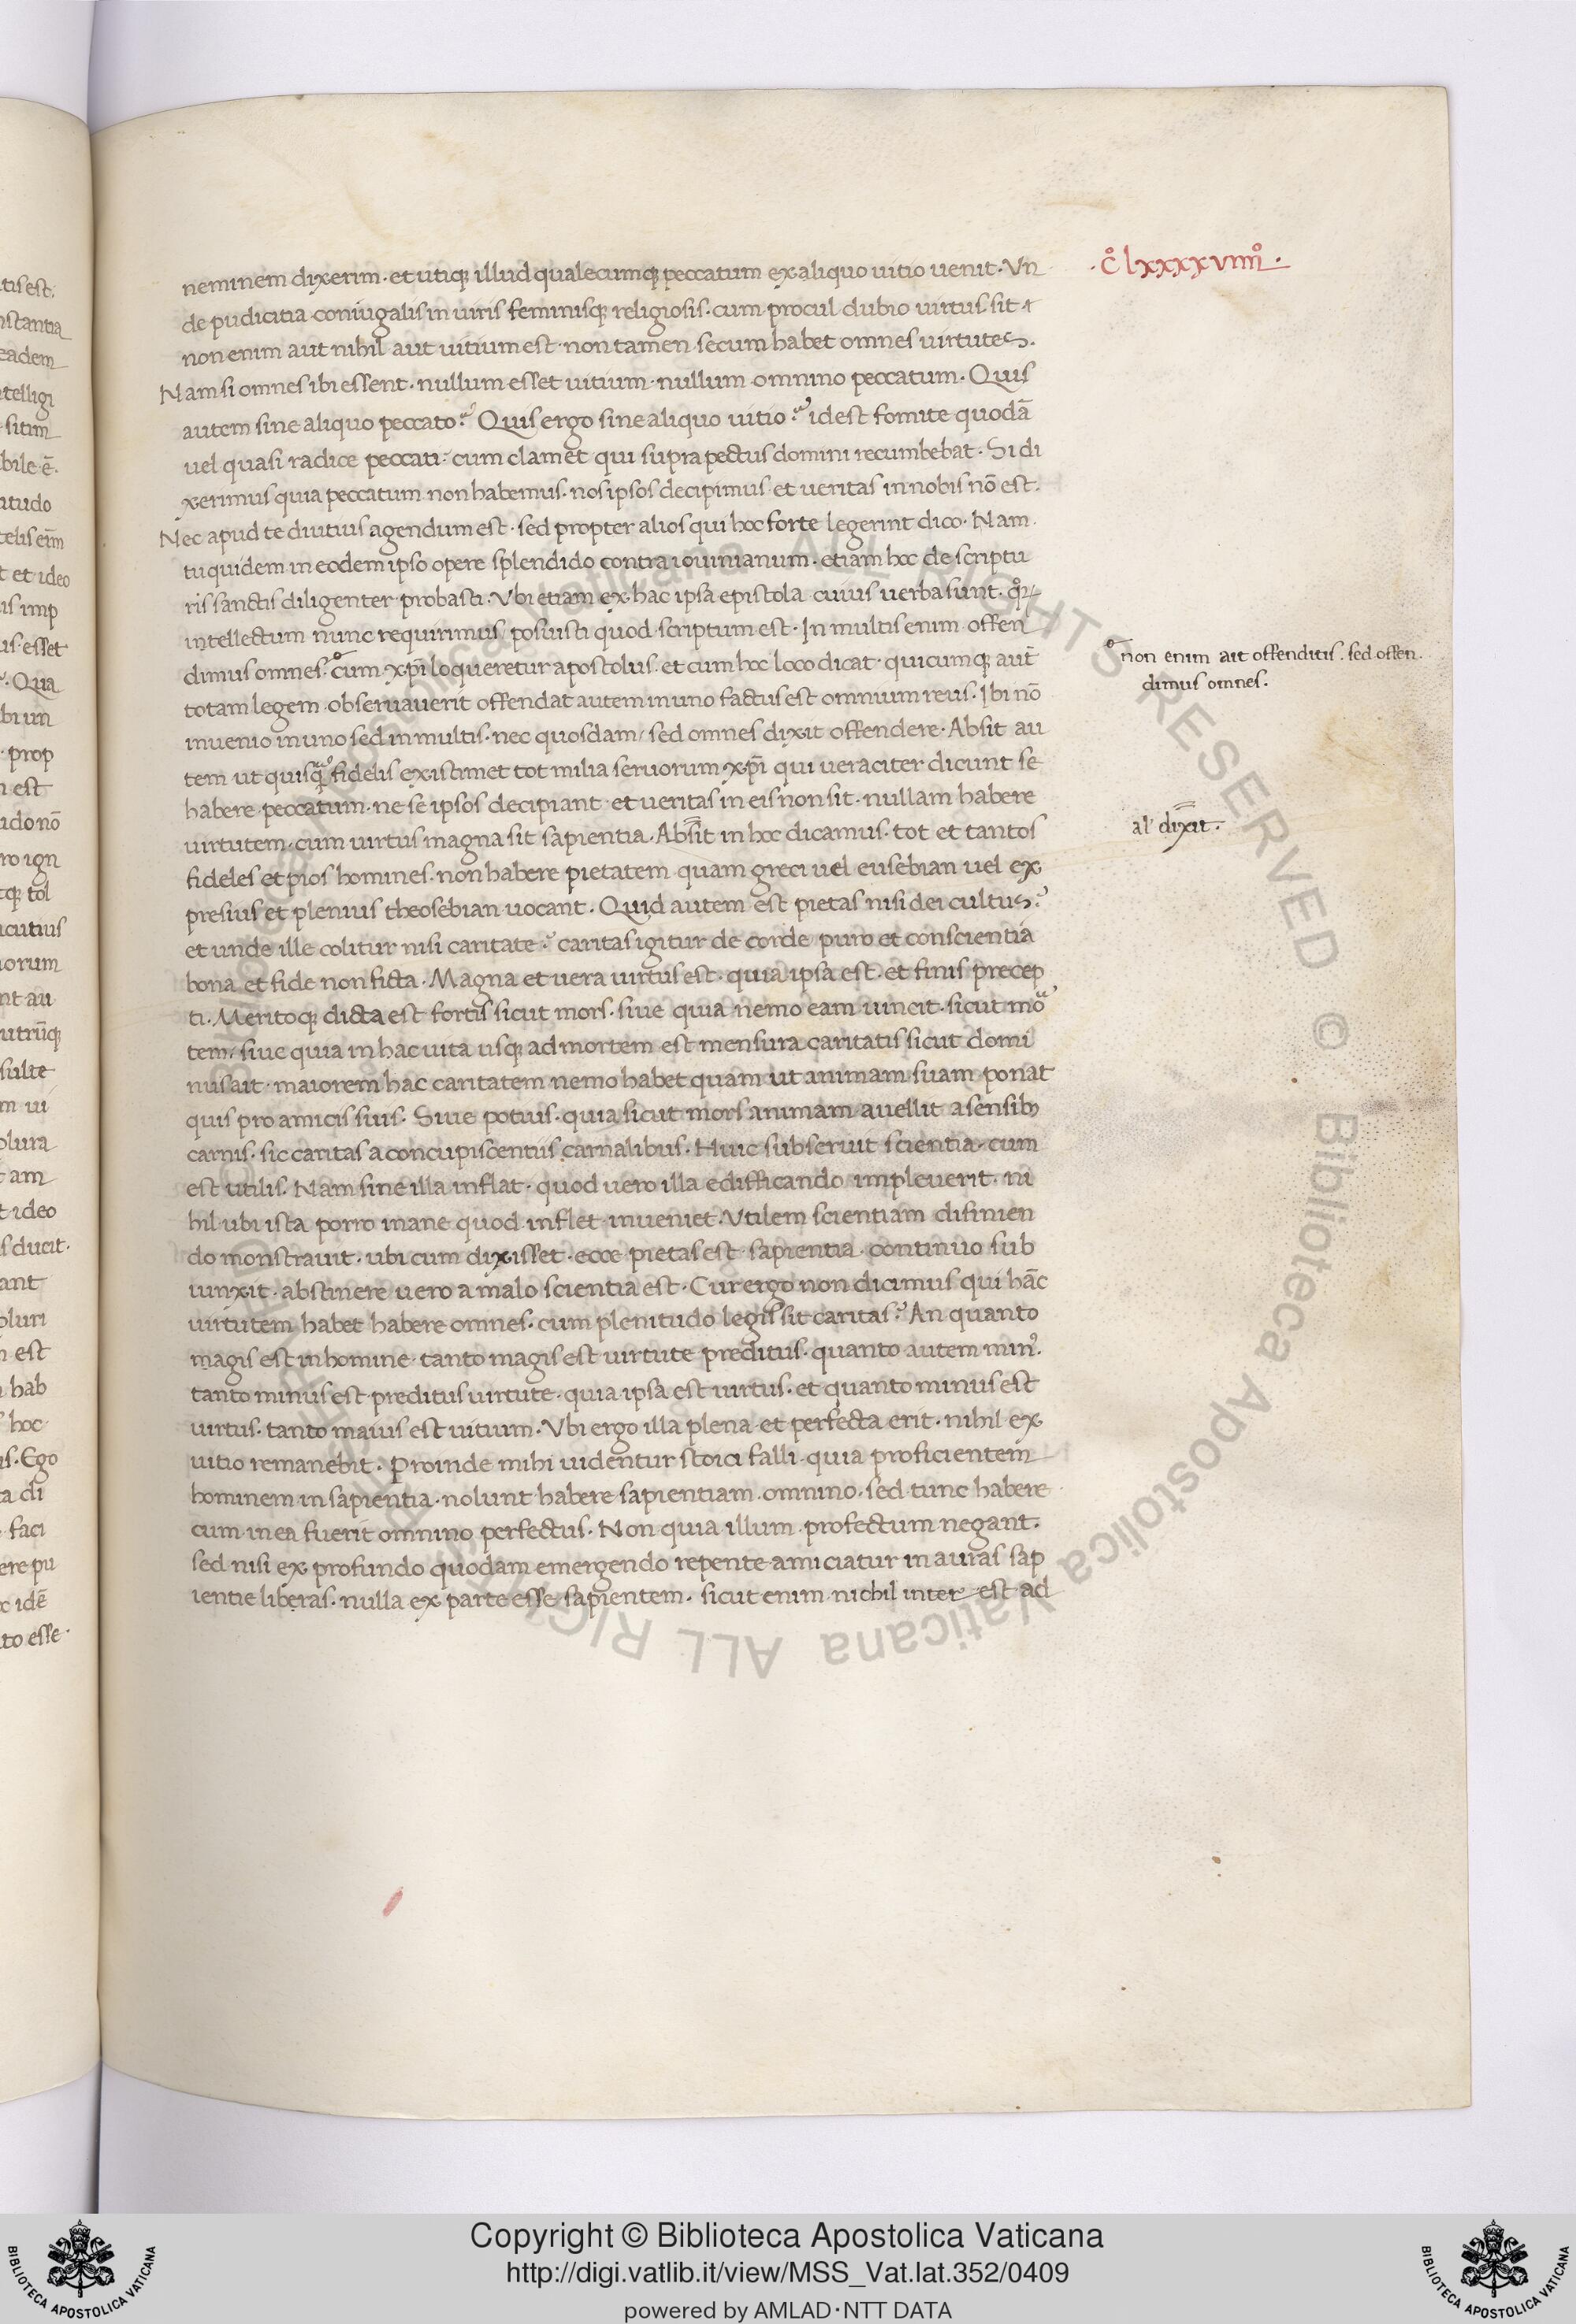 neminem dixerim · et utiq; illud qualecumq; peccatum ex aliquo uitio uenit · Vn
de pudicitia coniugalis in uiris feminisq; religiosis · cum procul dubio uirtus sit ·
non enim aut nihil aut uitium est · non tamen secum habet omnes uirtutes.
Nam si omnes ibi essent · nullum esset uitium · nullum omnino peccatum · Quis
autem sine aliquo peccato? Quis ergo sine aliquo uitio? idest fomite quodā
uel quasi radice peccati · cum clamet qui supra pectus domini recumbebat · Si di
xerimus quia peccatum non habemus · nos ipsos decipimus et ueritas in nobis nō est.
Nec apud te diutius agendum est · sed propter alios qui hoc forte legerint dico · Nam
tu quidem in eodem ipso opere splendido contra iouinianum · etiam hoc de scriptu
ris sanctis diligenter probasti · Vbi etiam ex hac ipsa epistola cuius uerba sunt ·
intellectum nunc requirimus posuisti quod scriptum est · In multis enim offen
dimus omnes · cum xp̄i loqueretur apostolus · et cum hoc loco dicat · quicumq; aut̄
totam legem obseruauerit offendat autem in uno factus est omnium reus · Ibi nō
inuenio in uno sed in multis · nec quosdam sed omnes dixit offendere · Absit au
tem ut quisq̄ fidelis existimet tot milia seruorum xp̄i qui ueraciter dicunt se
habere peccatum · ne se ipsos decipiant et ueritas in eis non sit · nullam habere
uirtutem · cum uirtus magna sit sapientia · Absit in hoc dicamus · tot et tantos
fideles et pios homines · non habere pietatem quam greci uel eusebian uel ex
presius et plenius theosebian uocant · Quid autem est pietas nisi dei cultus?
et unde ille colitur nisi caritate? caritas igitur de corde puro et conscientia
bona et fide non ficta · Magna et uera uirtus est · quia ipsa est · et finis precep
ti · Meritoq; dicta est fortis sicut mors · siue quia nemo eam uincit · sicut mo
tem · siue quia in hac uita usq; ad mortem est mensura caritatis sicut domi
nus ait · maiorem hac caritatem nemo habet quam ut animam suam ponat
quis pro amicis suis · Siue potius · quia sicut mors animam auellit a sensib;
carnis · sic caritas a concupiscentiis carnalibus · Huic subseruit scientia · cum
est utilis · Nam sine illa inflat · quod uero illa edifficando impleuerit · ni
hil ubi ista porro inane quod inflet inueniet · Vtilem scientiam difinien
do monstrauit · ubi cum dixisset · ecce pietas est sapientia continuo sub
iunxit · abstinere uero a malo scientia est · Cur ergo non dicimus qui hāc
uirtutem habet habere omnes · cum plenitudo legis sit caritas? An quanto
magis est in homine · tanto magis est uirtute preditus · quanto autem min⁹.
tanto minus est preditus uirtute · quia ipsa est uirtus · et quanto minus est
uirtus · tanto maius est uitium · Vbi ergo illa plena et perfecta erit · nihil ex
uitio remanebit · Proinde mihi uidentur stoici falli · quia proficientem
hominem in sapientia · nolunt habere sapientiam omnino · sed tunc habere
cum in ea fuerit omnino perfectus · Non quia illum profectum negant ·
sed nisi ex profundo quodam emergendo repente amiciatur in auras sap
ientie liberas · nulla ex parte esse sapientem · sicut enim nichil inter est ad
· c̊ lxxxxviiii ·
non enim ait offenditis · sed offen
dimus omnes ·
al' dixit ·
Copyright © Biblioteca Apostolica Vaticana
http://digi.vatlib.it/view/MSS_Vat.lat.352/0409
powered by AMLAD·NTT DATA
BIBLIOTECA APOSTOLICA VATICANA
BIBLIOTECA APOSTOLICA VATICANA